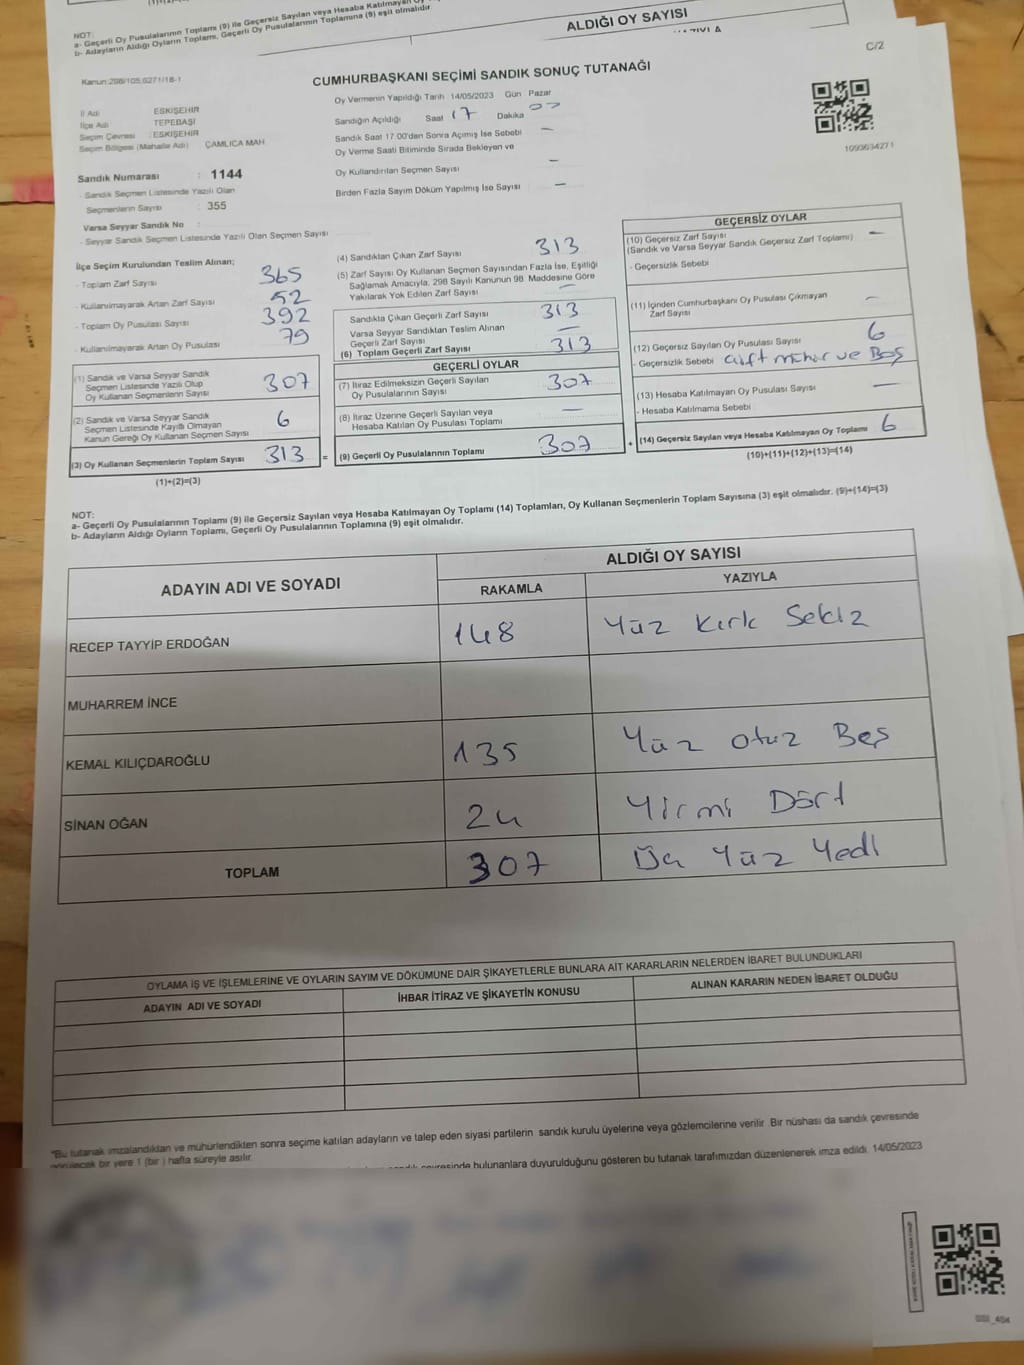 NOT:
a- Geçerli Oy Pusulalarının Toplamı (9) ile Geçersiz Sayılan veya Hesaba Katılmayan Oy
b- Adayların Aldığı Oyların Toplamı, Geçerli Oy Pusulalarının Toplamına (9) eşit olmalıdır.
ALDIĞI OY SAYISI
C/2
Kanun:298/105,6271/18-1
CUMHURBAŞKANI SEÇİMİ SANDIK SONUÇ TUTANAĞI
İl Adı ESKİŞEHİR
İlçe Adı TEPEBAŞI
Seçim Çevresi : ESKİŞEHİR
Seçim Bölgesi (Mahalle Adı) ÇAMLICA MAH
Sandık Numarası : 1144
- Sandık Seçmen Listesinde Yazılı Olan
Seçmenlerin Sayısı : 355
Varsa Seyyar Sandık No
- Seyyar Sandık Seçmen Listesinde Yazılı Olan Seçmen Sayısı
Oy Vermenin Yapıldığı Tarih 14/05/2023 Gün Pazar
Sandığın Açıldığı Saat 17 Dakika
Sandık Saat 17:00'dan Sonra Açımış İse Sebebi —
Oy Verme Saati Bitiminde Sırada Bekleyen ve
Oy Kullandırılan Seçmen Sayısı —
Birden Fazla Sayım Döküm Yapılmış İse Sayısı —
1093634271
İlçe Seçim Kurulundan Teslim Alınan;
- Toplam Zarf Sayısı 365
- Kullanılmayarak Artan Zarf Sayısı 52
- Toplam Oy Pusulası Sayısı 392
- Kullanılmayarak Artan Oy Pusulası 79
(1) Sandık ve Varsa Seyyar Sandık
Seçmen Listesinde Yazılı Olup
Oy Kullanan Seçmenlerin Sayısı 307
(2) Sandık ve Varsa Seyyar Sandık
Seçmen Listesinde Kayıtlı Olmayan
Kanun Gereği Oy Kullanan Seçmen Sayısı 6
(3) Oy Kullanan Seçmenlerin Toplam Sayısı 313 =
(1)+(2)=(3)
(4) Sandıktan Çıkan Zarf Sayısı 313
(5) Zarf Sayısı Oy Kullanan Seçmen Sayısından Fazla İse, Eşitliği
Sağlamak Amacıyla, 298 Sayılı Kanunun 98. Maddesine Göre
Yakılarak Yok Edilen Zarf Sayısı —
Sandıkta Çıkan Geçerli Zarf Sayısı 313
Varsa Seyyar Sandıktan Teslim Alınan
Geçerli Zarf Sayısı —
(6) Toplam Geçerli Zarf Sayısı 313
GEÇERLİ OYLAR
(7) İtiraz Edilmeksizin Geçerli Sayılan
Oy Pusulalarının Sayısı 307
(8) İtiraz Üzerine Geçerli Sayılan veya
Hesaba Katılan Oy Pusulası Toplamı —
(9) Geçerli Oy Pusulalarının Toplamı 307 +
GEÇERSİZ OYLAR
(10) Geçersiz Zarf Sayısı —
(Sandık ve Varsa Seyyar Sandık Geçersiz Zarf Toplamı)
- Geçersizlik Sebebi
(11) İçinden Cumhurbaşkanı Oy Pusulası Çıkmayan
Zarf Sayısı —
(12) Geçersiz Sayılan Oy Pusulası Sayısı 6
- Geçersizlik Sebebi çift mühür ve Boş
(13) Hesaba Katılmayan Oy Pusulası Sayısı —
- Hesaba Katılmama Sebebi
(14) Geçersiz Sayılan veya Hesaba Katılmayan Oy Toplamı 6
(10)+(11)+(12)+(13)=(14)
NOT:
a- Geçerli Oy Pusulalarının Toplamı (9) ile Geçersiz Sayılan veya Hesaba Katılmayan Oy Toplamı (14) Toplamları, Oy Kullanan Seçmenlerin Toplam Sayısına (3) eşit olmalıdır. (9)+(14)=(3)
b- Adayların Aldığı Oyların Toplamı, Geçerli Oy Pusulalarının Toplamına (9) eşit olmalıdır.
ADAYIN ADI VE SOYADI
ALDIĞI OY SAYISI
RAKAMLA YAZIYLA
RECEP TAYYİP ERDOĞAN 148 Yüz Kırk Sekiz
MUHARREM İNCE
KEMAL KILIÇDAROĞLU 135 Yüz Otuz Beş
SİNAN OĞAN 24 Yirmi Dört
TOPLAM 307 Üç Yüz Yedi
OYLAMA İŞ VE İŞLEMLERİNE VE OYLARIN SAYIM VE DÖKÜMÜNE DAİR ŞİKAYETLERLE BUNLARA AİT KARARLARIN NELERDEN İBARET BULUNDUKLARI
ADAYIN ADI VE SOYADI İHBAR İTİRAZ VE ŞİKAYETİN KONUSU ALINAN KARARIN NEDEN İBARET OLDUĞU
*Bu tutanak imzalandıktan ve mühürlendikten sonra seçime katılan adayların ve talep eden siyasi partilerin sandık kurulu üyelerine veya gözlemcilerine verilir. Bir nüshası da sandık çevresinde
görülecek bir yere 1 (bir ) hafta süreyle asılır.
çevresinde bulunanlara duyurulduğunu gösteren bu tutanak tarafımızdan düzenlenerek imza edildi. 14/05/2023